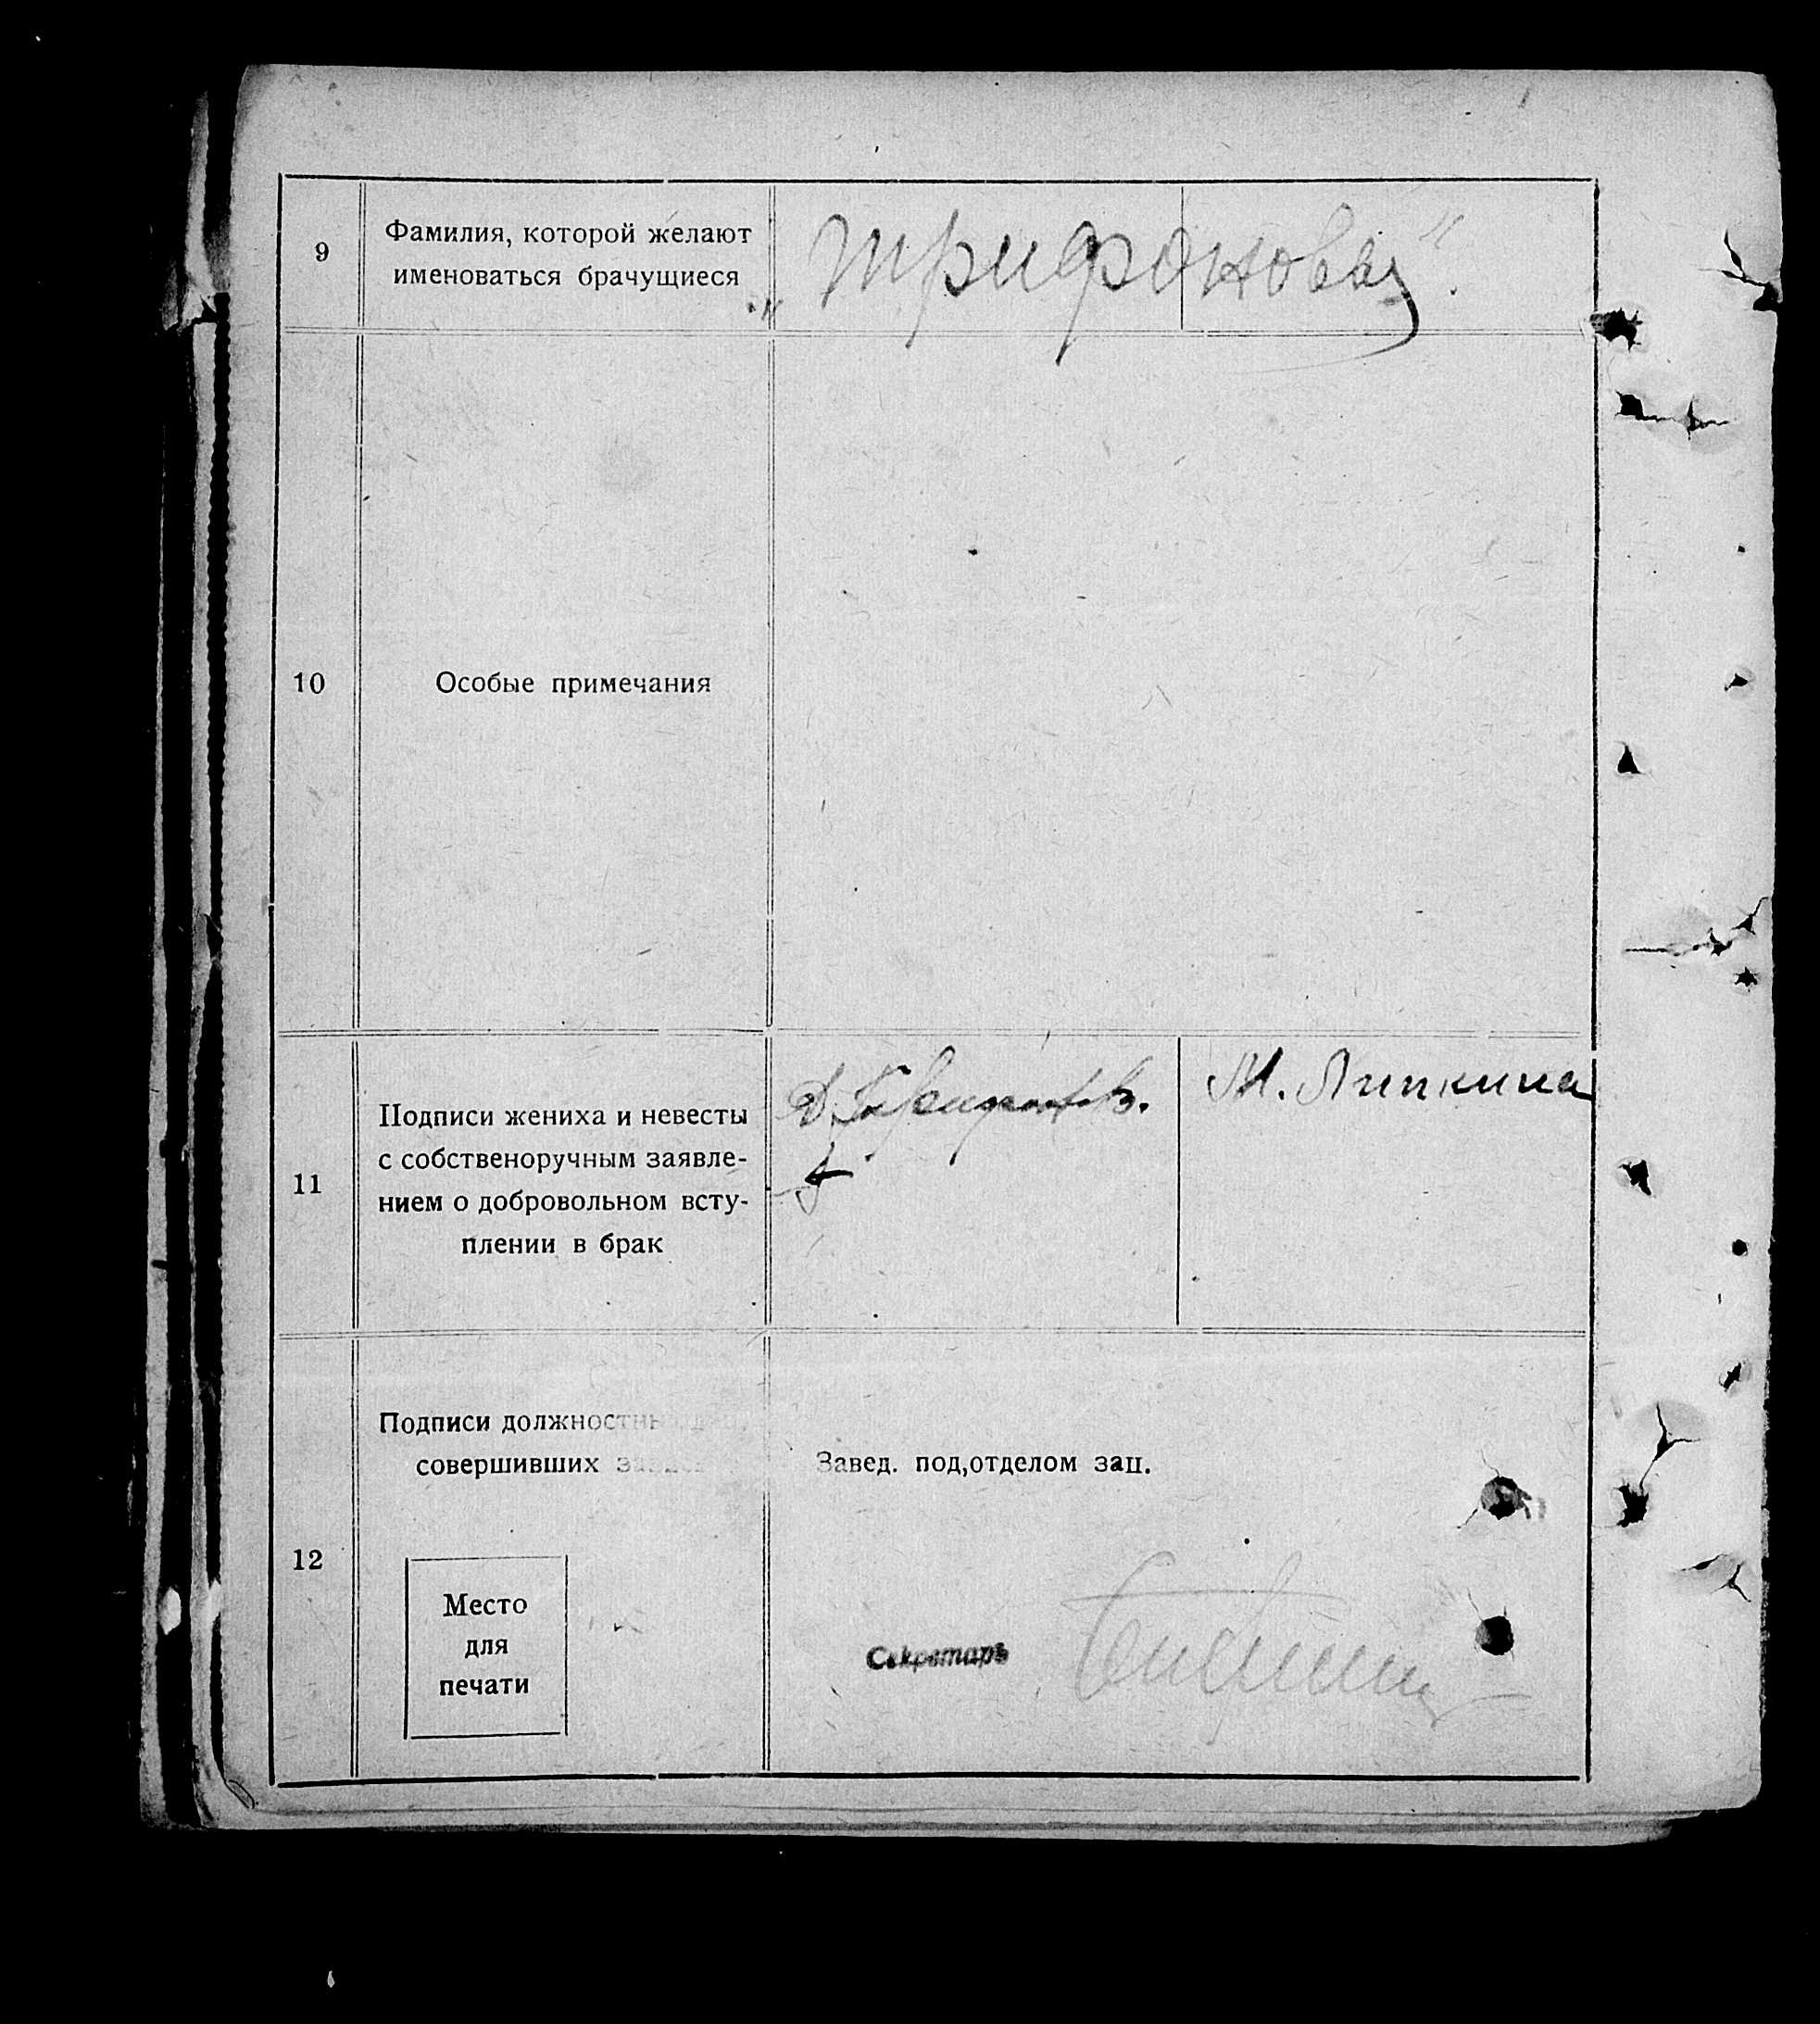 9
Фамилия, которой желают
именоваться брачущиеся
„Трифоновы".
10
Особые примечания
11
Подписи жениха и невесты
с собственоручным заявле-
нием о добровольном всту-
плении в брак
Д. Трифонов.
М. Липкина
12
Подписи должностных
совершивших
Завед. под,отделом зап.
Место
для
печати
Секретарь